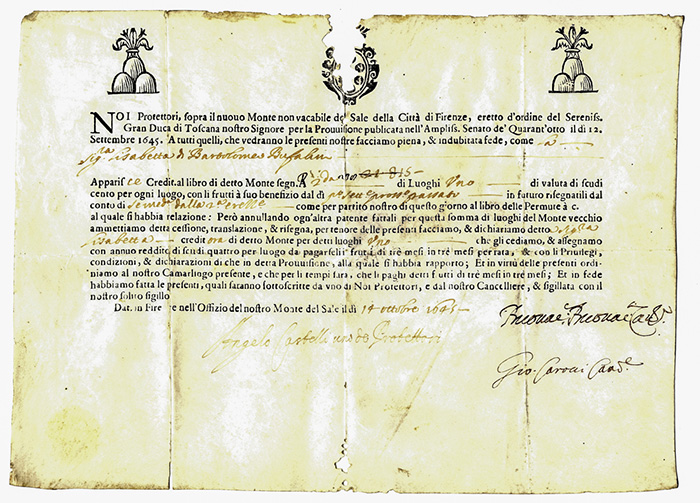 NOI Protettori, sopra il nuouo Monte non vacabile del Sale della Città di Firenze, eretto d'ordine del Sereniss.
Gran Duca di Toscana nostro Signore per la Prouuisione publicata nell'Ampliss. Senato de' Quarant'otto il dì 12.
Settembre 1645. A tutti quelli, che vedranno le presenti nostre facciamo piena, & indubitata fede, come a
Sig.ra Isabetta di Bartolomeo
Apparisce Credit. al libro di detto Monte segn. A di Luoghi Vno di valuta di scudi
cento per ogni luogo, con li frutti à suo benefizio dal dì in futuro risegnatili dal
conto di come per partito nostro di questo giorno al libro delle Permute à c.
al quale si habbia relatione: Però annullando ogn'altra patente fattali per questa somma di luoghi del Monte vecchio
ammettiamo detta cessione, translazione, & risegna, per tenore delle presenti facciamo, & dichiariamo detto Sig.ra
Isabetta creditora di detto Monte per detti luoghi Vno che gli cediamo, & assegnamo
con annuo reddito di scudi quattro per luogo da pagarseli i frutti di tre mesi in tre mesi per rata, & con li Priuilegi,
condizioni, & dichiarazioni di che in detta Prouuisione, alla quale si habbia rapporto; Et in virtù delle presenti ordi-
niamo al nostro Camarlingo presente, e che per li tempi sarà, che li paghi detti frutti di tre mesi in tre mesi; Et in fede
habbiamo fatta le presenti, quali saranno sottoscritte da vno di Noi Protettori, e dal nostro Cancelliere, & sigillata con il
nostro solito sigillo
Dat. in Firenze nell'Offizio del nostro Monte del Sale il dì 14 ottobre 1645
Angelo Castelli uno de Protettori
Gio.